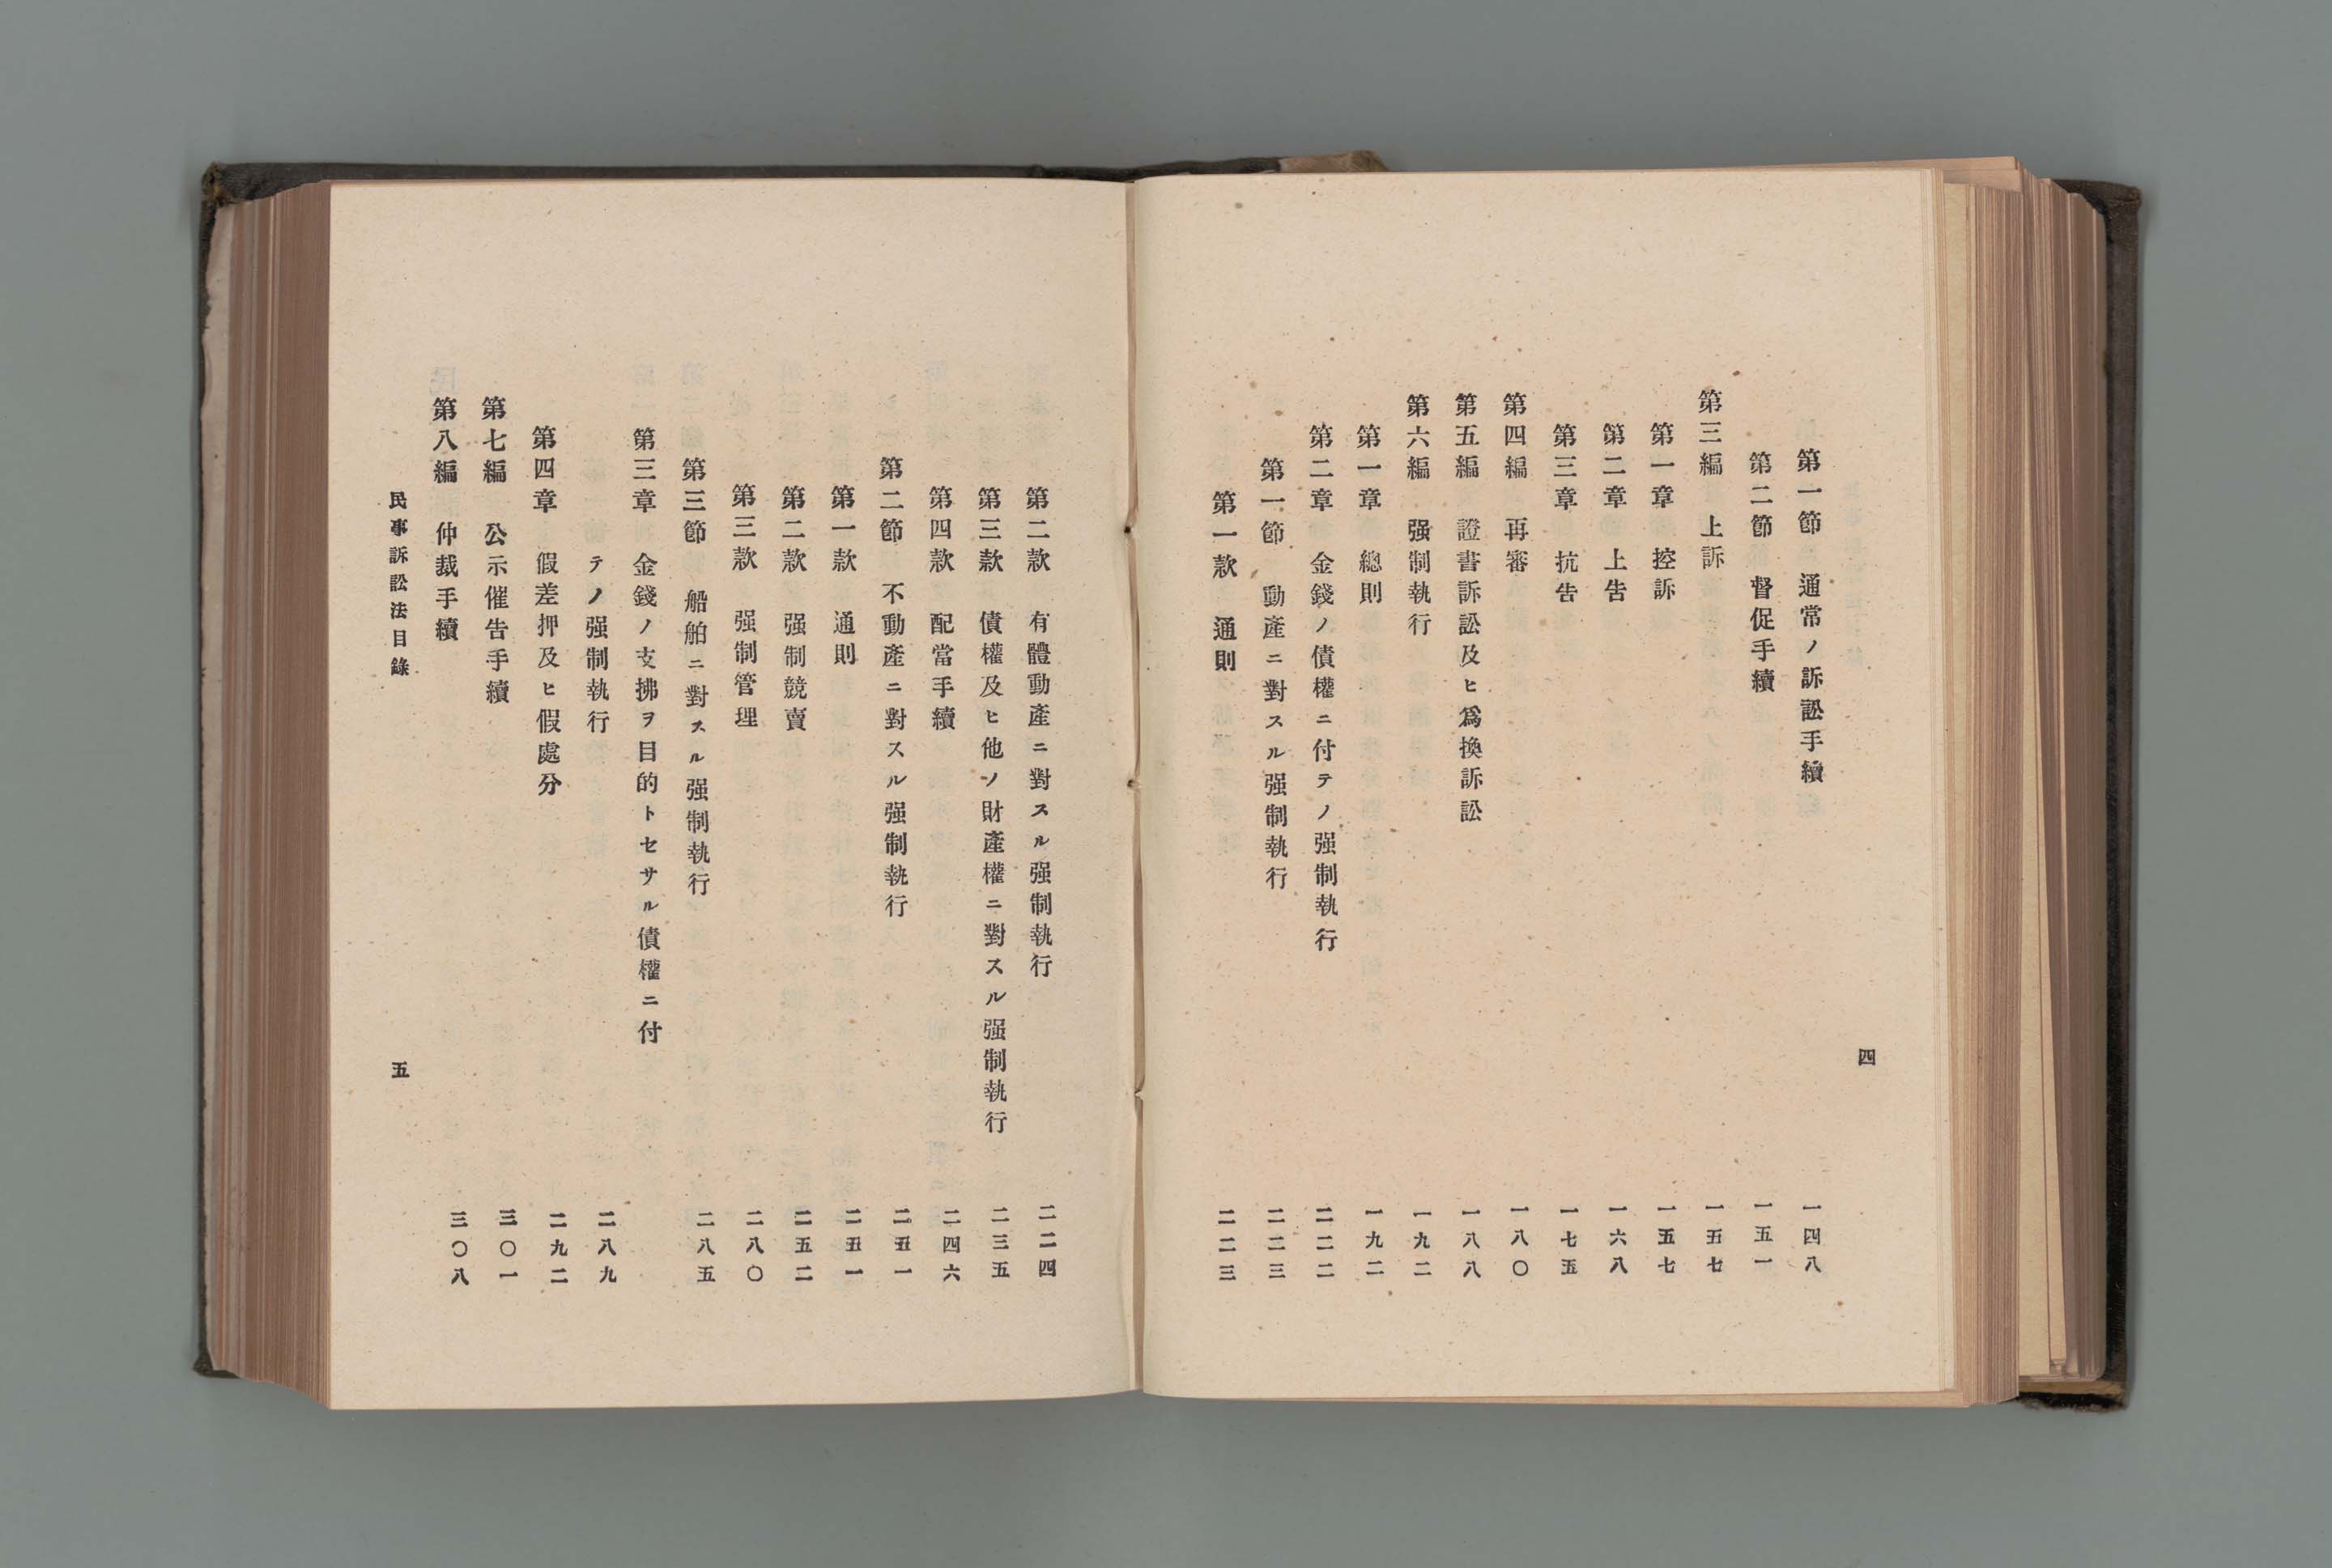 四
第一節　通常ノ訴訟手續　一四八
第二節　督促手續　一五一
第三編　上訴　一五七
第一章　控訴　一五七
第二章　上告　一六八
第三章　抗告　一七五
第四編　再審　一八〇
第五編　證書訴訟及ヒ爲換訴訟　一八八
第六編　强制執行　一九二
第一章　總則　一九二
第二章　金錢ノ債權ニ付テノ强制執行　二二二
第一節　動產ニ對スル强制執行　二二三
第一款　通則　二二三
第二款　有體動產ニ對スル强制執行　二二四
第三款　債權及ヒ他ノ財產權ニ對スル强制執行　二三五
第四款　配當手續　二四六
第二節　不動產ニ對スル强制執行　二五一
第一款　通則　二五一
第二款　强制競賣　二五二
第三款　强制管理　二八〇
第三節　船舶ニ對スル强制執行　二八五
第三章　金錢ノ支拂ヲ目的トセサル債權ニ付
テノ强制執行　二八九
第四章　假差押及ヒ假處分　二九二
第七編　公示催告手續　三〇一
第八編　仲裁手續　三〇八
民事訴訟法目錄　五